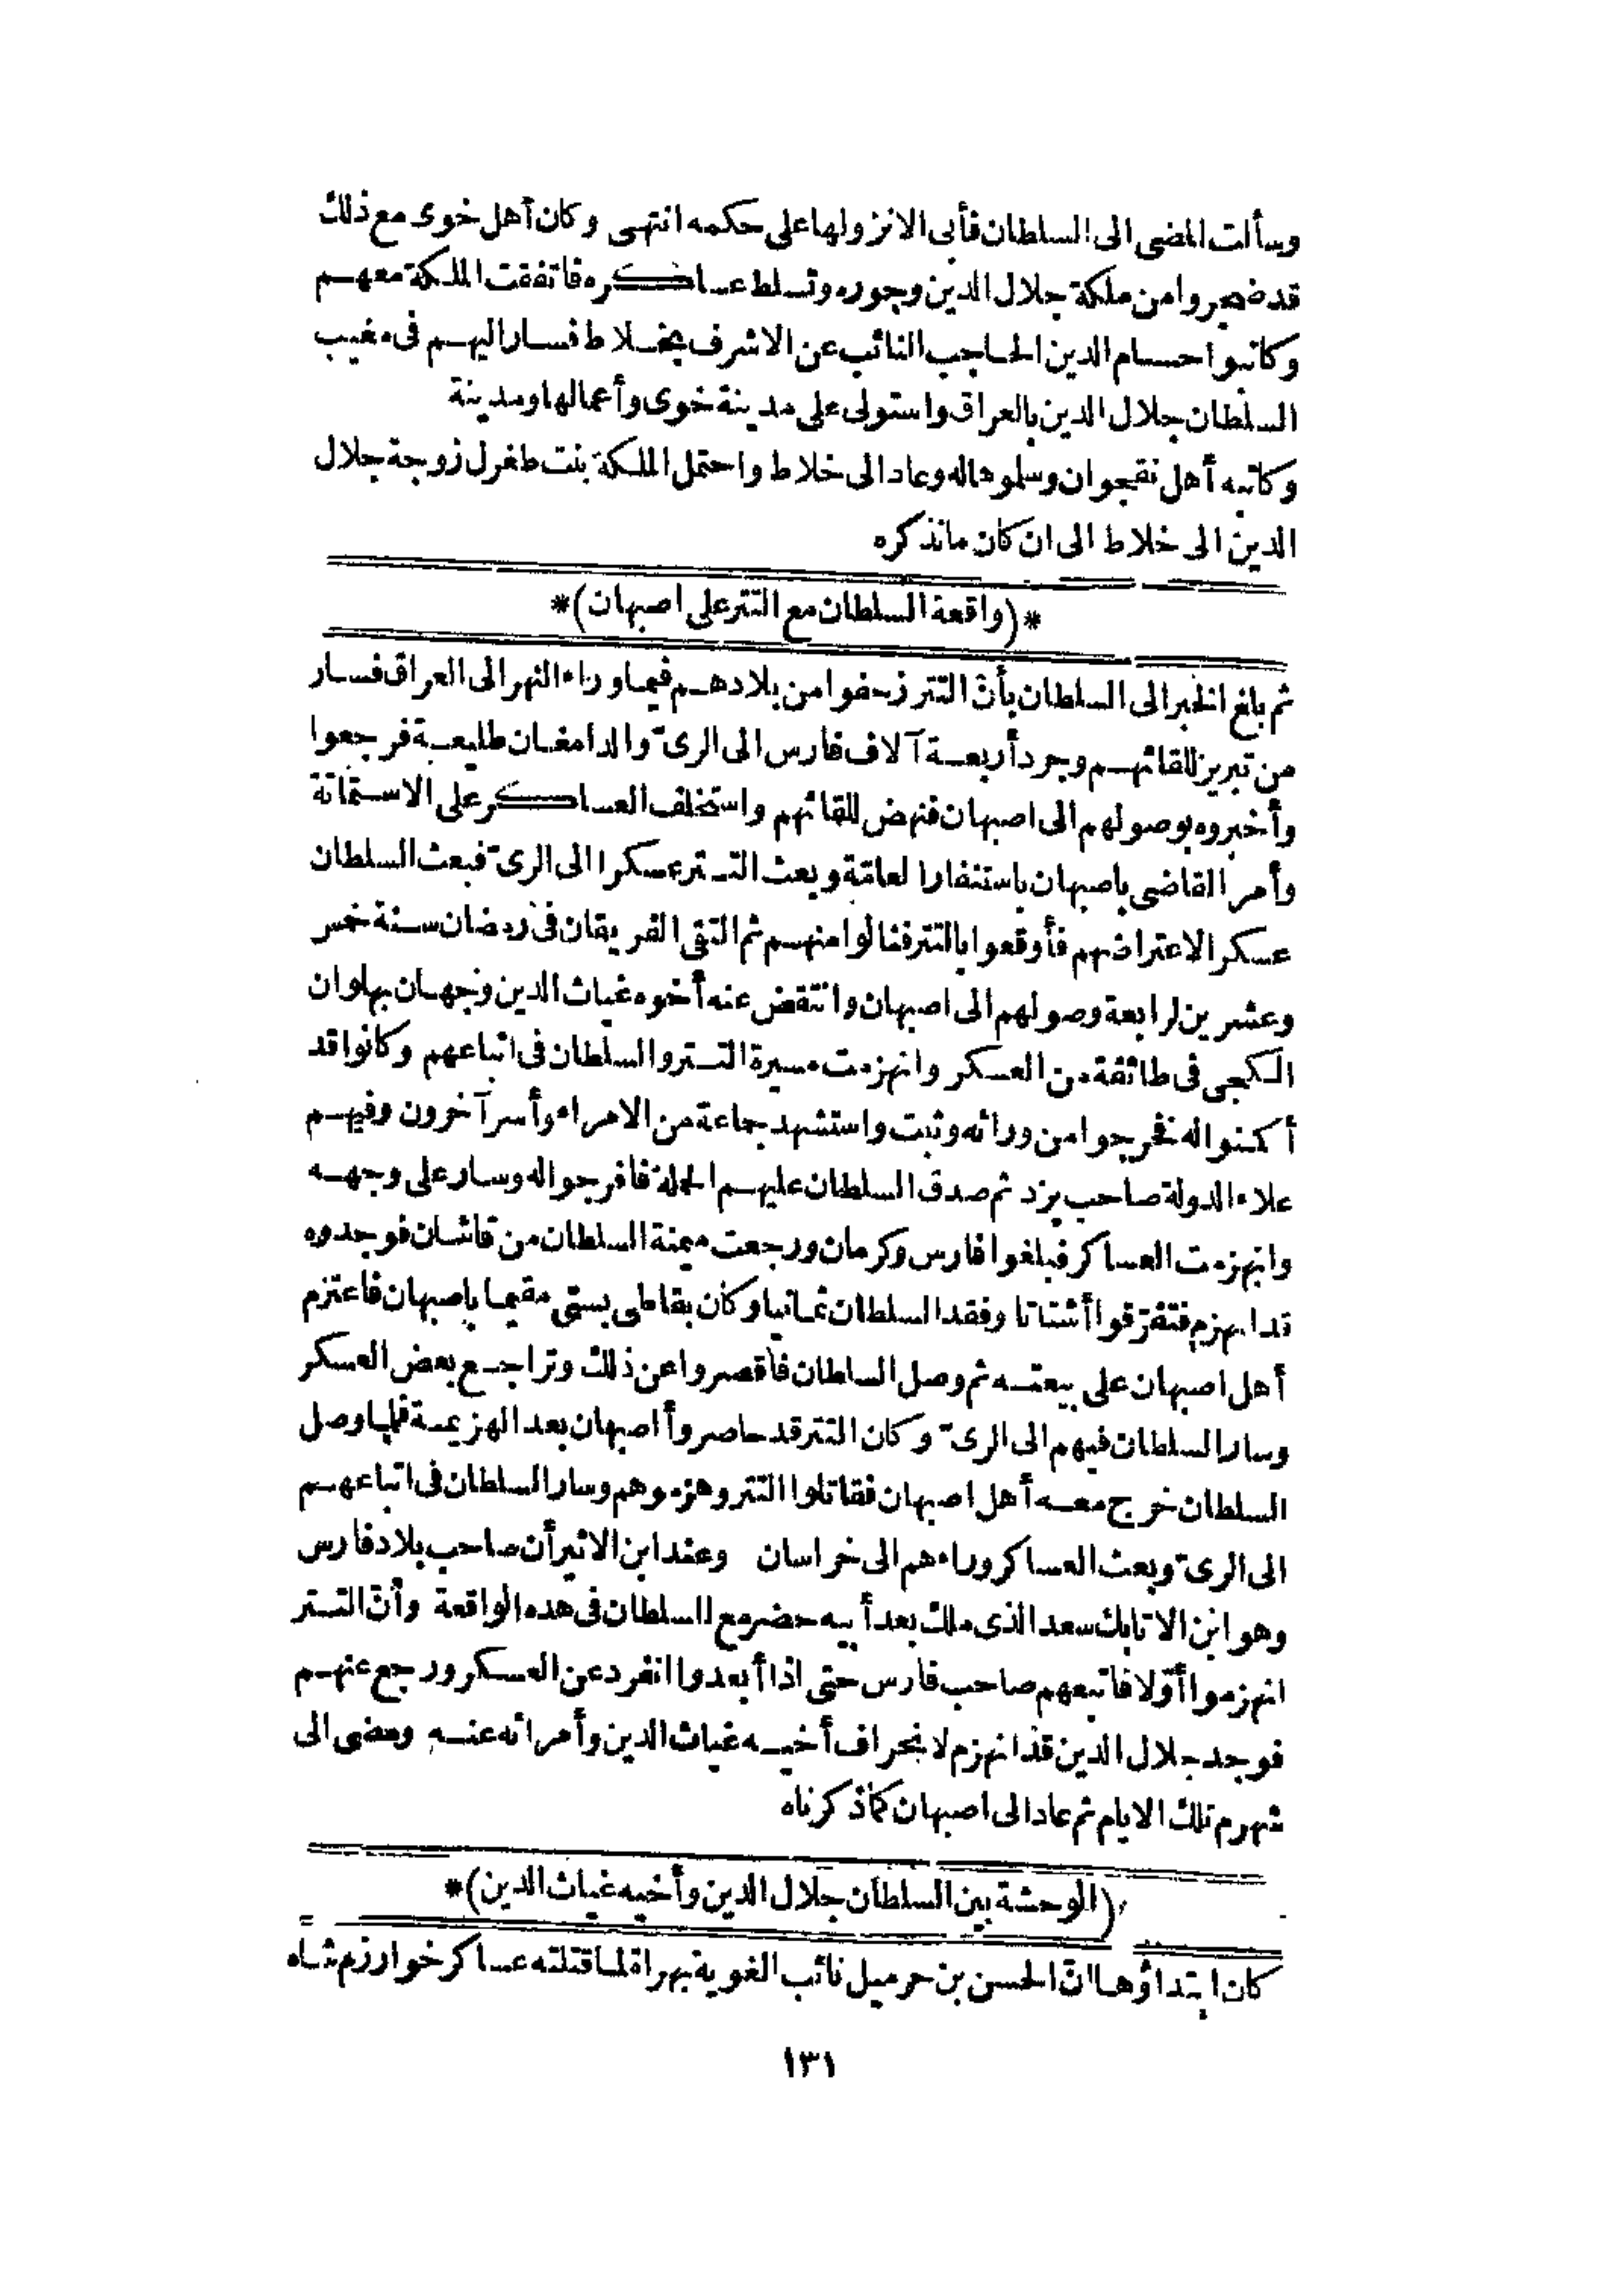 وسألت المضى الى السلطان فأبى الا نزولها على حكمه انتهى وكان أهل خوى مع ذلك
قد ضجروا من ملكة جلال الدين وجوره وتسلط عساكره فاتفقت الملكة معهم
وكاتبوا حسام الدين الحاجب النائب عن الاشرف بخلاط فسار اليهم فى مغيب
السلطان جلال الدين بالعراق واستولى على مدينة خوى وأعمالها ومدينة
وكاتبه أهل نقجوان وسلوهاله وعاد الى خلاط واحتمل الملكة بنت طغرل زوجة جلال
الدين الى خلاط الى ان كان مانذكره
*(واقعة السلطان مع التتر على اصبهان)*
ثم بلغ الخبر الى السلطان بأنّ التتر زحفوا من بلادهم فيما وراء النهر الى العراق فسار
من تبريز للقائهم وجرد أربعة آلاف فارس الى الرىّ والدامغان طليعة فرجعوا
وأخبروه بوصولهم الى اصبهان فنهض للقائهم واستخلف العساكر على الاستماتة
وأمر القاضى باصبهان باستنفار العامّة وبعث التتر عسكرا الى الرىّ فبعث السلطان
عسكرا لاعتراضهم فأوقعوا بالتتر فنالوا منهم ثم التقى الفريقان فى رمضان سنة خمس
وعشرين لرابعة وصولهم الى اصبهان وانتقض عنه أخوه غياث الدين وجهان بهلوان
الكجى فى طائفة من العسكر وانهزمت مسيرة التتر والسلطان فى اتباعهم وكانوا قد
أكمنواله فخرجوا من ورائه وثبت واستشهد جماعة من الامراء وأسر آخرون وفيهم
علاء الدولة صاحب يزد ثم صدق السلطان عليهم الحملة فافرجواله وسار على وجهه
وانهزمت العساكر فبلغوا فارس وكرمان ورجعت ميمنة السلطان من قاشان فوجدوه
قد انهزم فتفرّقوا أشتاتا وفقد السلطان ثمانيا وكان بقاطى بستى مقيما باصبهان فاعتزم
أهل اصبهان على بيعته ثم وصل السلطان فأقصروا عن ذلك وتراجع بعض العسكر
وسار السلطان فيهم الى الرىّ وكان التتر قد حاصروأ اصبهان بعد الهزيمة فلما وصل
السلطان خرج معه أهل اصبهان فقاتلوا التتر وهزموهم وسار السلطان فى اتباعهم
الى الرىّ وبعث العساكر وراءهم الى خراسان وعند ابن الاثير أن صاحب بلاد فارس
وهو ابن الاتابك سعد الذى ملك بعد أبيه حضر مع السلطان فى هذه الواقعة وأنّ التتر
انهزموا أوّلا فاتبعهم صاحب فارس حتى اذا أبعدوا انفرد عن العسكر ورجع عنهم
فوجد جلال الدين قد انهزم لانحراف أخيه غياث الدين وأمرائه عنه ومضى الى
شهرم تلك الايام ثم عاد الى اصبهان كما ذكرناه
(الوحشة بين السلطان جلال الدين وأخيه غياث الدين)*
كان ابتداؤها انّ الحسن بن حرميل نائب الغوية بهراة لما قتلته عساكر خوارزم شاه
١٣١